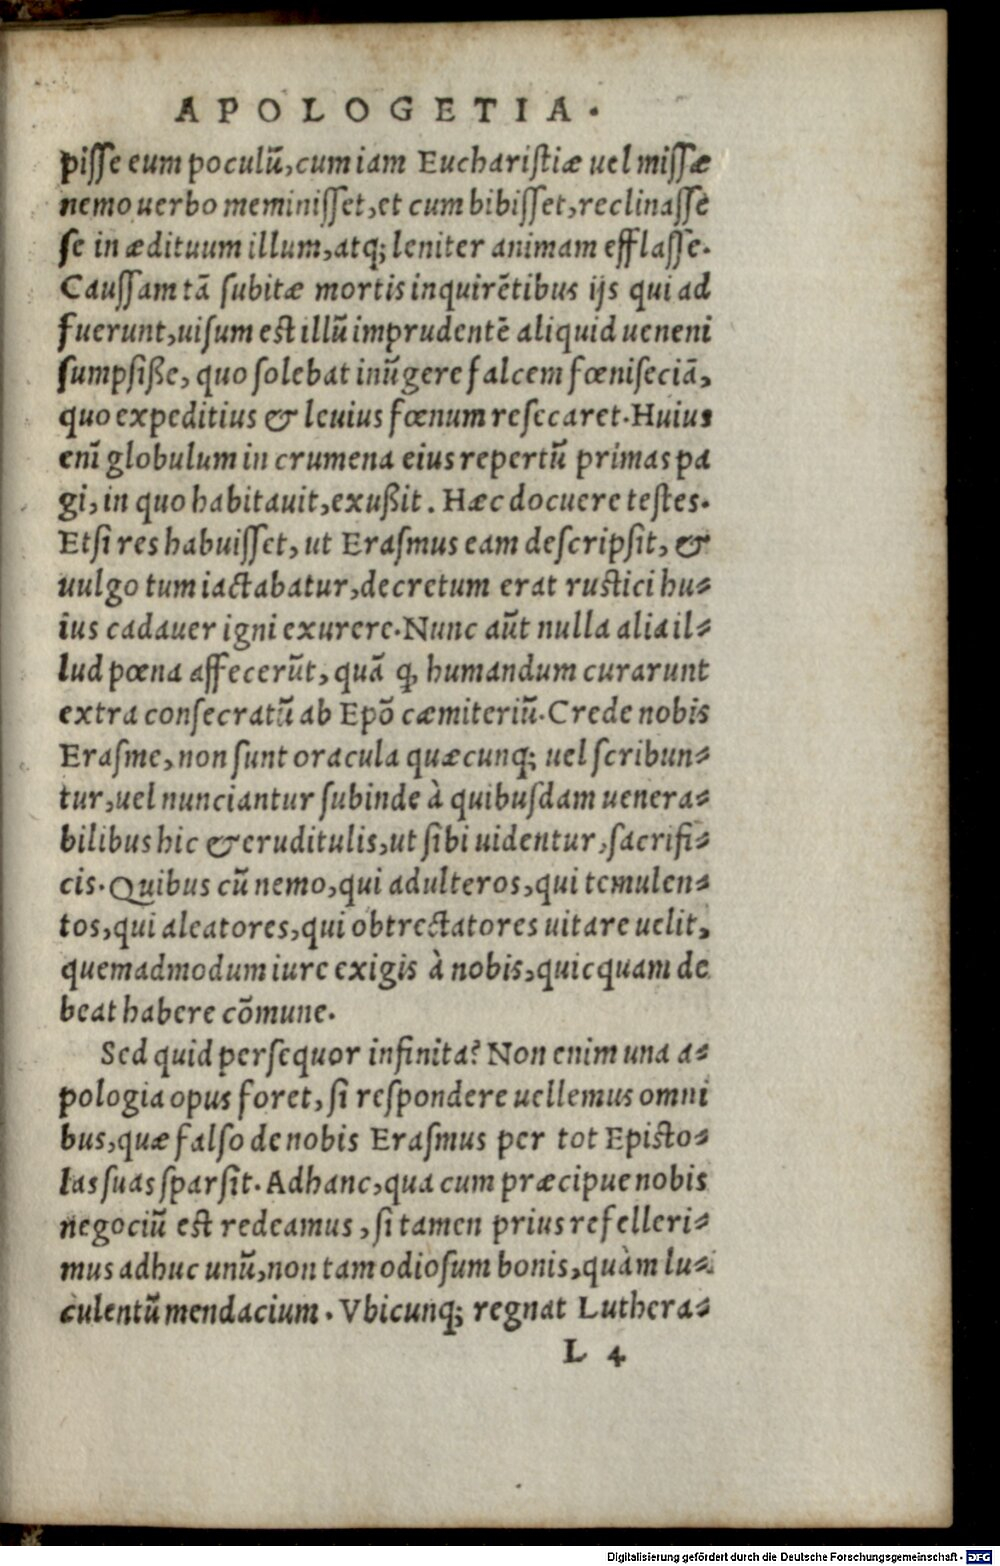 APOLOGETIA.
piſſe eum poculũ, cum iam Euchariſtiæ uel miſſæ
nemo uerbo meminiſſet, et cum bibiſſet, reclinaſſe
ſe in ædituum illum, atq; leniter animam efflaſſe.
Cauſſam tã ſubitæ mortis inquirẽtibus ijs qui ad
fuerunt, uiſum eſt illũ imprudentẽ aliquid ueneni
ſumpſiße, quo ſolebat inũgere falcem fœniſeciã,
quo expeditius & leuius fœnum reſecaret. Huius
enĩ globulum in crumena eius repertũ primas pa
gi, in quo habitauit, exußit. Hæc docuere teſtes.
Etſi res habuiſſet, ut Eraſmus eam deſcripſit, &
uulgo tum iactabatur, decretum erat ruſtici hu⸗
ius cadauer igni exurere. Nunc aũt nulla alia il⸗
lud pœna affecerũt, quã ꝙ humandum curarunt
extra conſecratũ ab Epõ cæmiteriũ. Crede nobis
Eraſme, non ſunt oracula quæcunq; uel ſcribun⸗
tur, uel nunciantur ſubinde à quibuſdam uenera⸗
bilibus hic & eruditulis, ut ſibi uidentur, ſacrifi⸗
cis. Quibus cũ nemo, qui adulteros, qui temulen⸗
tos, qui aleatores, qui obtrectatores uitare uelit,
quemadmodum iure exigis à nobis, quicquam de
beat habere cõmune.
Sed quid perſequor infinita? Non enim una a⸗
pologia opus foret, ſi reſpondere uellemus omni
bus, quæ falſo de nobis Eraſmus per tot Epiſto⸗
las ſuas ſparſit. Ad hanc, qua cum præcipue nobis
negociũ eſt redeamus, ſi tamen prius refelleri⸗
mus adhuc unũ, non tam odioſum bonis, quàm lu⸗
culentũ mendacium. Vbicunq; regnat Luthera⸗
L 4
Digitalisierung gefördert durch die Deutsche Forschungsgemeinschaft - DFG